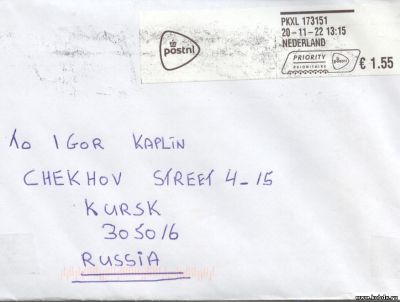 PKXL 173151
20-11-22 13:15
NEDERLAND
postnl
PRIORITY
PRIORITAIRE
postnl
€ 1.55
TO IGOR KAPLIN
CHEKHOV STREET 4-15
KURSK
305016
RUSSIA